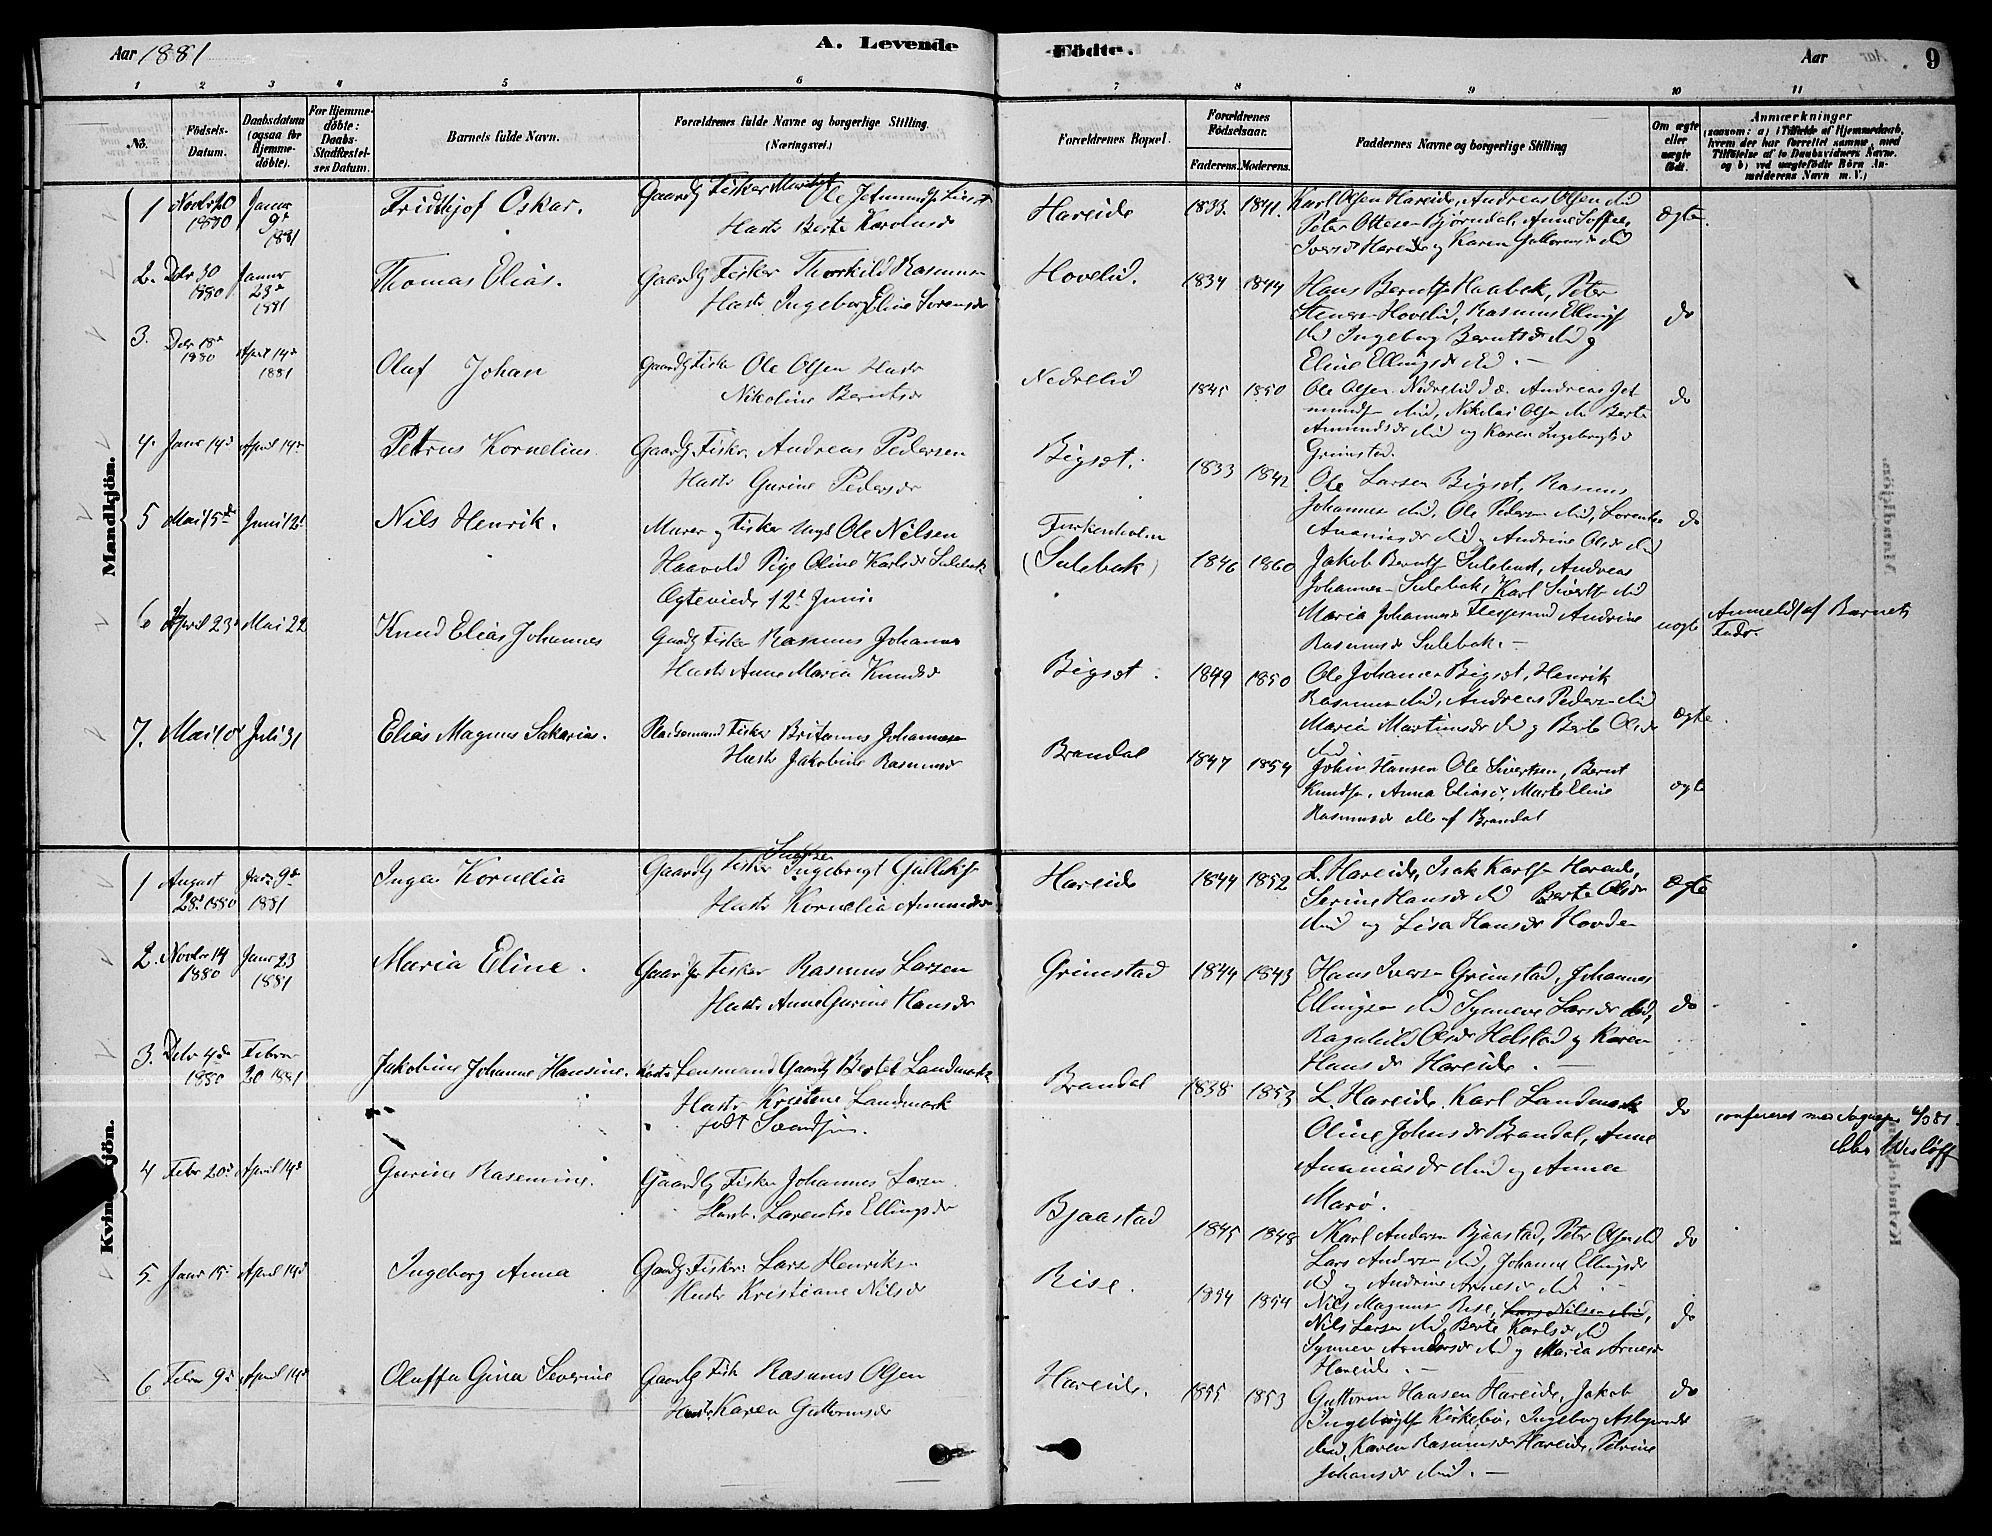 Aar 1881
A. Levende
Födte.
Aar
9
1 2 3 4 5 6 7 8 9 10 11
No.
Födsels-Datum.
Daabsdatum (ogsaa for Hjemme-döbte).
For Hjemme-döbte: Daabs-Stadfæstel-ses Datum.
Barnets fulde Navn.
Forældrenes fulde Navne og borgerlige Stilling. (Næringsvei.)
Forældrenes Bopæl.
Forældrenes Födselsaar.
Faderens. Moderens.
Faddernes Navne og borgerlige Stilling
Om ægte eller uægte födt.
Anmærkninger
(saasom: a) i Tilfælde af Hjemmedaab, hvem der har forrettet samme, med Tilföielse af to Daabsvidners Navne. og b) ved uægtefödte Börn An-melderens Navn m. V.)
Mandkjön.
1 Novbr 20 1880 Januar 9de 1881 Fridthjof Oskar.
Hustr Berte Karolusdr
Hareide 1833. 1841. Karl Olsen Hareide, Andreas Olsen ibid
Peter Ottesen Bjørndal, Anne Soffie
Iversdr Hareide og Karen Guttormsdr ibid
Ægte.
2. Debr 30 1880 Januar 23de 1881 Thomas Elias. Gaardbr Fisker Thorkild Rasmusen
Hustr Ingeborg Eline Sørensdr
Hovelid. 1834 1844 Hans Berntsen Haabak, Peter
Stenersen Hovelid, Rasmus Ellingsen
ibid Ingeborg Berntsdr ibid og
Eline Ellingsdr ibid. —
do
3. Debr 18de 1880 April 14de 1881 Olaf Johan Gaardbr Fisker Ole Olsen Hustr
Nikoline Berntsdr
Nedrelid 1845 1850 Ole Olsen Nedrelid d.æ. Andreas Jet
mundsen ibid, Nikolai Olsen ibid Berte
Amundsdr ibid og Karen Ingebrigtsdr
Grimstad.
do
4. Janr 14de April 14de Petrus Kornelius. Gaardbr Fisker. Andreas Pedersen
Hustr Gurine Pedersdr
Bigset. 1833 1842 Ole Larsen Bigset, Rasmus
Johannesen ibid. Ole Pedersen ibid, Lorentse
Ananiasdr ibid og Andrine Olsdr ibid
do
5 Mai 15de Juni 12te Nils Henrik. Murer og Fisker Ungk Ole Nilsen
Haavold Pige Oline Karlsdr Sulebak
Ægteviede 12te Juni.
(Sulebak) 1846 1860 Jakob Berntsen Sulebust, Andreas
Johannesen Sulebak, Karl Sivertsen ibid
Maria Johannesdr Flessesund Andrine
Rasmusdr Sulebak. —
uægte Anmeldt af Barnets Fader.
6 April 23de Mai 22 Knud Elias Johannes Gaardbr Fisker Rasmus Johannesen
Hustr Anne Maria Knudsdr
Bigset. 1849 1850 Ole Johannesen Bigset, Henrik
Rasmusen ibid, Andreas Pedersen ibid
Maria Martinusdr ibid og Berte Olsdr
ibid
ægte.
7. Mai 10de Juli 31 Elias Magnus Sakarias. Pladsemand Fisker Britanus Johannesen
Hustr Jakobine Rasmusdr
Brandal 1847 1854 Johan Hansen Ole Sivertsen, Bernt
Knudsen. Anna Eliasdr, Marte Eline
Rasmusdr alle af Brandal
ægte
Kvindekjön.
1 August 28de 1880 Janr 9de 1881 Inga Kornelia Gaardbr Fisker Ingebrigt Gulliksen
Hustr Kornelia Amundsdr
Hareide 1844 1852 L. Hareide, Isak Karlsen Hareide,
Serine Hansdr ibid Berte Olsdr
ibid og Lisa Hansdr Hovde
Ægte
2. Novbr 19 1880 Janr 23 1881 Maria Eline. Gaardbr Fisker Rasmus Larsen
Hustr Anne Gurine Hansdr
Grimstad 1844 1843 Hans Iversen Grimstad, Johannes
Ellingsen ibid Synneve Larsdr ibid,
Ragnhild Olsdr Holstad og Karen
Hansdr Hareide.
do
3. Debr 4de 1880 Febrar 20 1881 Jakobine Johanne Hansine. Lensmand Gaardbr Bertel Landmark
Hustr Kristine Landmark
født
Brandal 1838 1853 L. Hareide. Karl Landmark
Oline Johnsdr Brandal, Anne
Ananiasdr ibid og Anna
Marø.
do
4 Febr 20de April 14de Gurina Rasmine. Gaardbr Fisker Johannes Larsen.
Hustr. Lorentse Ellingsdr
Bjaastad 1845 1848 Karl Andersen Bjaastad, Peter Olsen ibid
Lars Andersen ibid, Johanne Ellingsdr
ibid og Andrine Arnesdr ibid. —
do
5. Janr 15de April 14de Ingeborg Anna Gaardbr Fisker. Lars Henriksen
Hustr Kristiane Nilsdr
Rise. 1854 1854 Nils Magnusen Rise, Lars Nilsen ibid,
Nils Larsen ibid, Berte Karlsdr ibid
Synnev Andersdr ibid og Maria Arnesdr
Hareide. —
do
6 Febr 9de April 14de Oluffa Gina Severine Gaardbr Fisk Rasmus Olsen
Hustr. Karen Guttormsdr
Hareide. 1855 1853 Guttorm Hansen Hareide, Jakob
Ingebrigtsen Kirkebø, Ingeborg Asbjørnsdr
ibid, Karen Rasmusdr Hareide, Petrine
Johansdr ibid. —
do